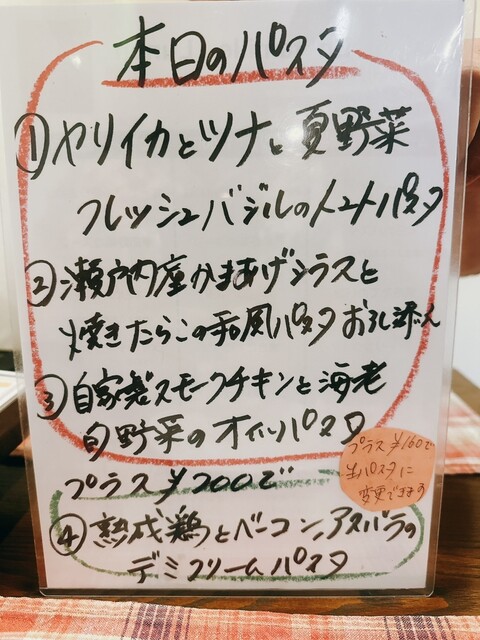 本日のパスタ
① ヤリイカとツナと夏野菜
フレッシュバジルのトマトパスタ
② 瀬戸内産かまあげシラスと
焼きたらこの和風パスタ おろし添え
③ 自家製スモークチキンと海老
旬野菜のオイルパスタ
プラス¥160で
生パスタに
変更できます
プラス¥200で
④ 熟成鶏とベーコン、アスパラの
デミクリームパスタ